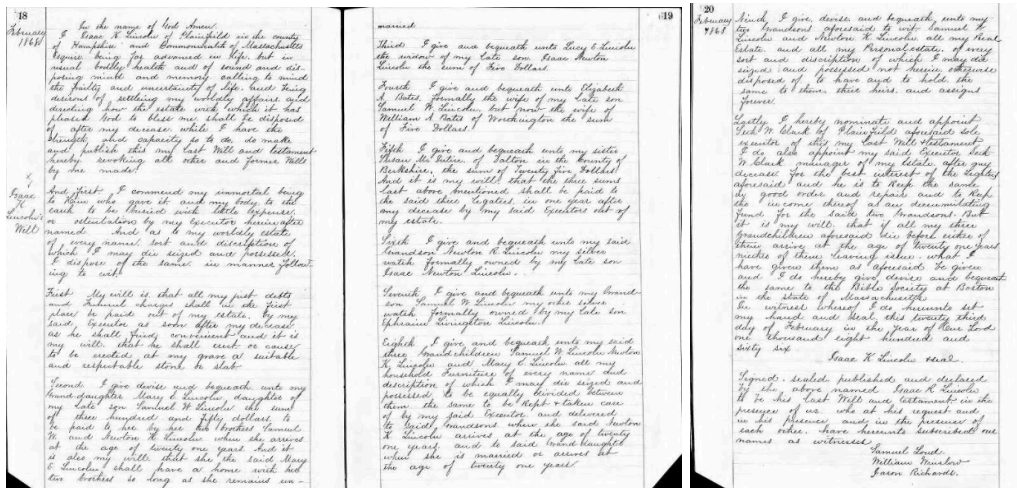 18
February
1868
In the name of God Amen.
I Isaac K Lincoln of Plainfield in the county
of Hampshire and Commonwealth of Massachusetts
Esquire being far advanced in life but in
usual bodily health and of sound and dis-
posing mind and memory calling to mind
the frailty and uncertainty of life and being
desirous of settling my worldly affairs and
directing how the estate with which it has
pleased God to bless me shall be disposed
of after my decease while I have the
strength and capacity so to do, do make
and publish this my last Will and testament
hereby revoking all other and former Wills
by me made.
Isaac
K
Lincoln's
Will
And first I commend my immortal being
to Him who gave it and my body to the
earth to be buried with little expense
or ostentation by my Executor hereinafter
named. And as to my worldly estate
of every name sort and discription of
which I may die seized and possessed
I dispose of the same in manner follow-
ing to wit
First My will is that all my just debts
and Funeral charges shall in the first
place be paid out of my estate by my
said Executor as soon after my decease
as he shall find convenient and it is
my will that he shall erect or cause
to be erected at my grave a suitable
and respectable stone or slab
Second I give devise and bequeath unto my
Grand daughter Mary E Lincoln daughter of
my late son Samuel W Lincoln the sum
of three hundred and fifty dollars to
be paid to her by her two brothers Samuel
W. and Newton K Lincoln when she arrives
at the age of twenty one years And it
is also my will that she the said Mary
E Lincoln shall have a home with her
two brothers so long as she remains un-
19
married
Third I give and bequeath unto Lucy E Lincoln
the widow of my late son Isaac Newton
Lincoln the sum of Five Dollars
Fourth I give and bequeath unto Elizabeth
A Bates, formally the wife of my late son
Samuel W Lincoln but now the wife of
William A Bates of Worthington the sum
of Five Dollars
Fifth I give and bequeath unto my sister
Susan Mc Intire of Dalton in the County of
Berkshire, the sum of Twenty five Dollars
And it is my will that the three sums
last above mentioned shall be paid to
the said three legatees in one year after
my decease by my said Executors out of
my estate.
Sixth I give and bequeath unto my said
Grandson Newton K Lincoln my silver
watch formally owned by my late son
Isaac Newton Lincoln.
Seventh I give and bequeath unto my Grand-
son Samuel W Lincoln my other silver
watch formally owned by my late son
Ephraim Livingston Lincoln
Eighth I give and bequeath unto my said
three Grandchildren Samuel W Lincoln Newton
K Lincoln and Mary E Lincoln all my
household Furniture of every name and
discription of which I may die seized and
possessed to be equally divided between
them the same to be kept & taken care
of by my said Executor and delivered
to said Grandsons when the said Newton
K Lincoln arrives at the age of twenty
one years and to said Grand daughter
when she is married or arrives at
the age of twenty one years
20
February
1868
Ninth I give, devise and bequeath, unto my
two Grandsons aforesaid to wit Samuel W
Lincoln and Newton K Lincoln all my Real
Estate and all my Personal estate of every
sort and discription of which I may die
seized and possessed not herein otherwise
disposed of to have and to hold the
same to them their heirs and assigns
forever
Lastly I hereby nominate and appoint
Seth W. Clark of Plainfield aforesaid sole
executor of this my Last Will & Testament
I do also appoint my said Executor Seth
W Clark manager of my Estate after my
decease for the best interest of the Legatees
aforesaid and he is to keep the same
in good order and repair and to keep
the income thereof as an accumulating
fund for the said two Grandsons. But
it is my will that if all my three
Grandchildren aforesaid die before either of
them arrive at the age of twenty one years
neither of them leaving issue what I
have given them as aforesaid be given
and I do hereby give devise and bequeath
the same to the Bible Society at Boston
in the state of Massachusetts
In witness whereof I do hereunto set
my hand and seal this twenty third
day of February in the year of our Lord
one thousand eight hundred and
sixty six
Isaac K Lincoln seal
Signed sealed published and declared
by the above named Isaac K Lincoln
to be his last Will and testament in the
presence of us who at his request and
in his presence and in the presence of
each other have hereunto subscribed our
names as witnesses
Samuel Loud
William Winslow
Jason Richards